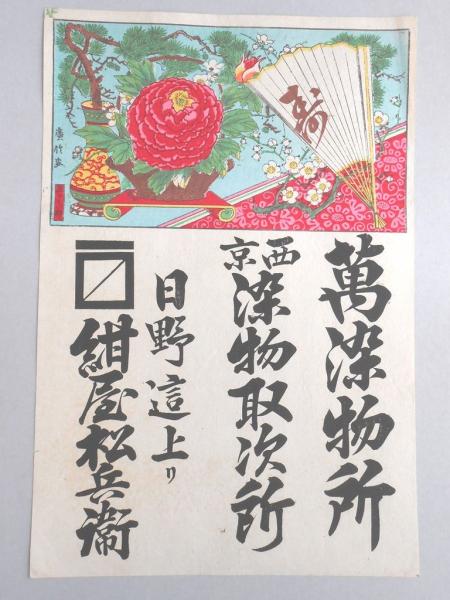 壽
萬染物所
西京
染物取次所
日野這上り
紺屋松兵衞